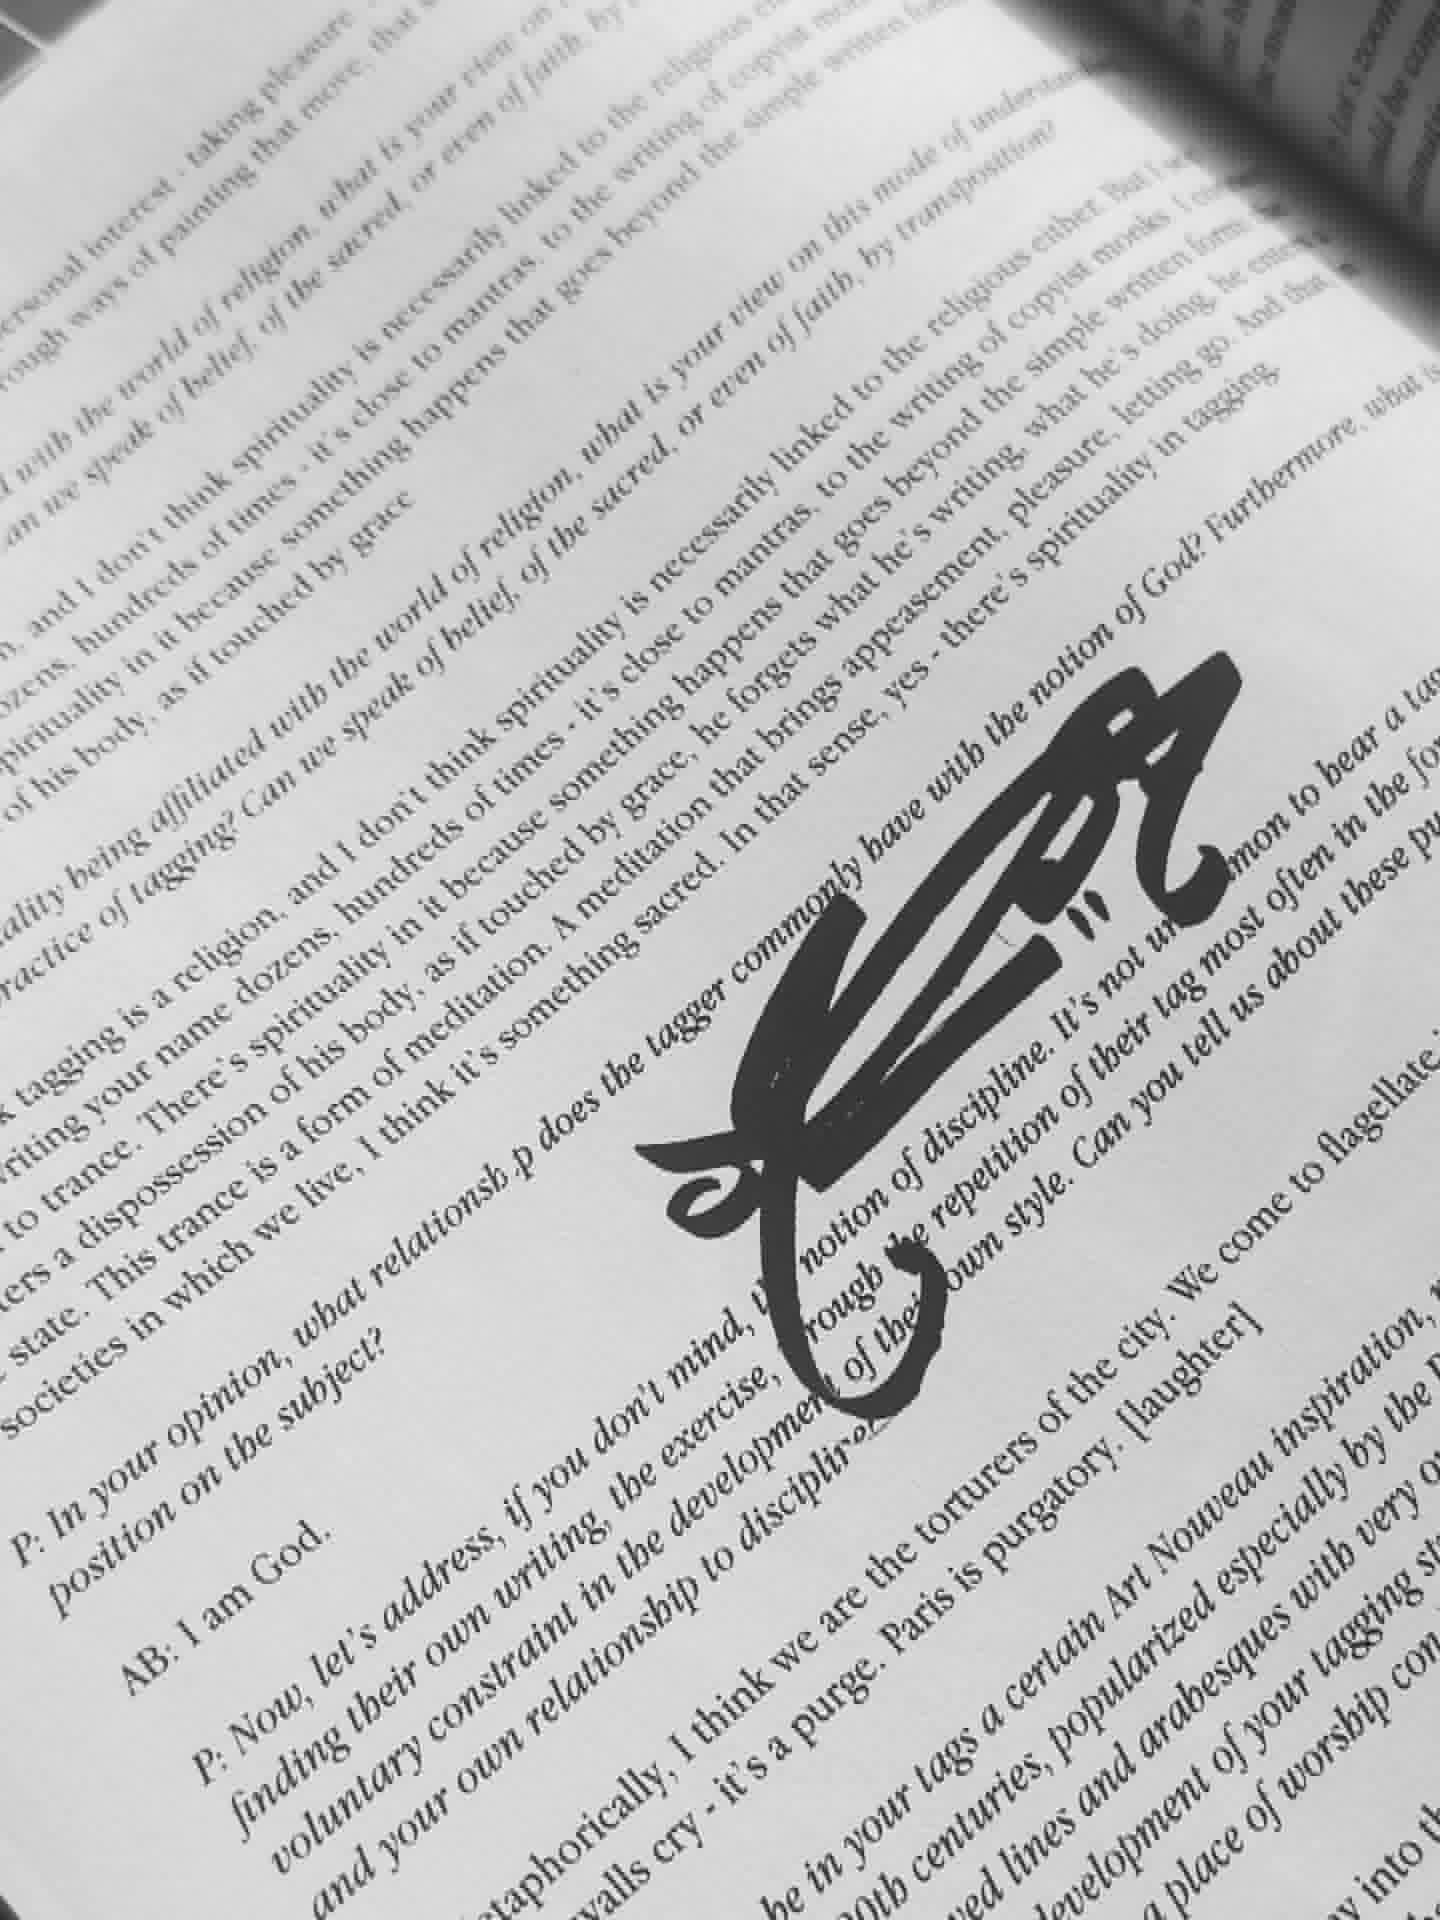 ersonal interest - taking pleasure
rough ways of painting that move, that
d with the world of religion, what is your view on
an we speak of belief, of the sacred, or even of faith, by
n, and I don't think spirituality is necessarily linked to the religious
ozens, hundreds of times - it's close to mantras, to the writing of copyist
spirituality in it because something happens that goes beyond the simple written
of his body, as if touched by grace
ality being affiliated with the world of religion, what is your view on this mode of
practice of tagging? Can we speak of belief, of the sacred, or even of faith, by transposition?
k tagging is a religion, and I don't think spirituality is necessarily linked to the religious either. But I
writing your name dozens, hundreds of times - it's close to mantras, to the writing of copyist monks. I
to trance. There's spirituality in it because something happens that goes beyond the simple written form.
ers a dispossession of his body, as if touched by grace, he forgets what he's writing, what he's doing, he
state. This trance is a form of meditation. A meditation that brings appeasement, pleasure, letting go. And that
societies in which we live, I think it's something sacred. In that sense, yes - there's spirituality in tagging.
P: In your opinion, what relationsh p does the tagger commonly have with the notion of God? Furthermore, what is
position on the subject?
AB: I am God.
P: Now, let's address, if you don't mind, notion of discipline. It's not un mmon to hear a tag
finding their own writing, the exercise, rough he repetition of their tag most often in the for
voluntary constraint in the development of their own style. Can you tell us about these pu
and your own relationship to discipline
etaphorically, I think we are the torturers of the city. We come to flagellate
walls cry - it's a purge. Paris is purgatory. [laughter]
be in your tags a certain Art Nouveau inspiration,
0th centuries, popularized especially by the
ved lines and arabesques with very
development of your tagging
a place of worship
into